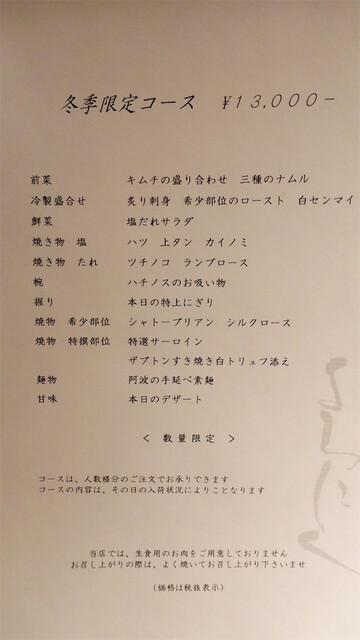 冬季限定コース ￥13,000－
前菜 キムチの盛り合わせ 三種のナムル
冷製盛合せ 炙り刺身 希少部位のロースト 白センマイ
鮮菜 塩だれサラダ
焼き物 塩 ハツ 上タン カイノミ
焼き物 たれ ツチノコ ランプロース
椀 ハチノスのお吸い物
握り 本日の特上にぎり
焼物 希少部位 シャトーブリアン シルクロース
焼物 特撰部位 特選サーロイン
ザブトンすき焼き白トリュフ添え
麺物 阿波の手延べ素麺
甘味 本日のデザート
＜ 数量限定 ＞
コースは、人数様分のご注文でお承りできます
コースの内容は、その日の入荷状況によりことなります
当店では、生食用のお肉をご用意しておりません
お召し上がりの際は、よく焼いてお召し上がり下さいませ
（価格は税抜表示）